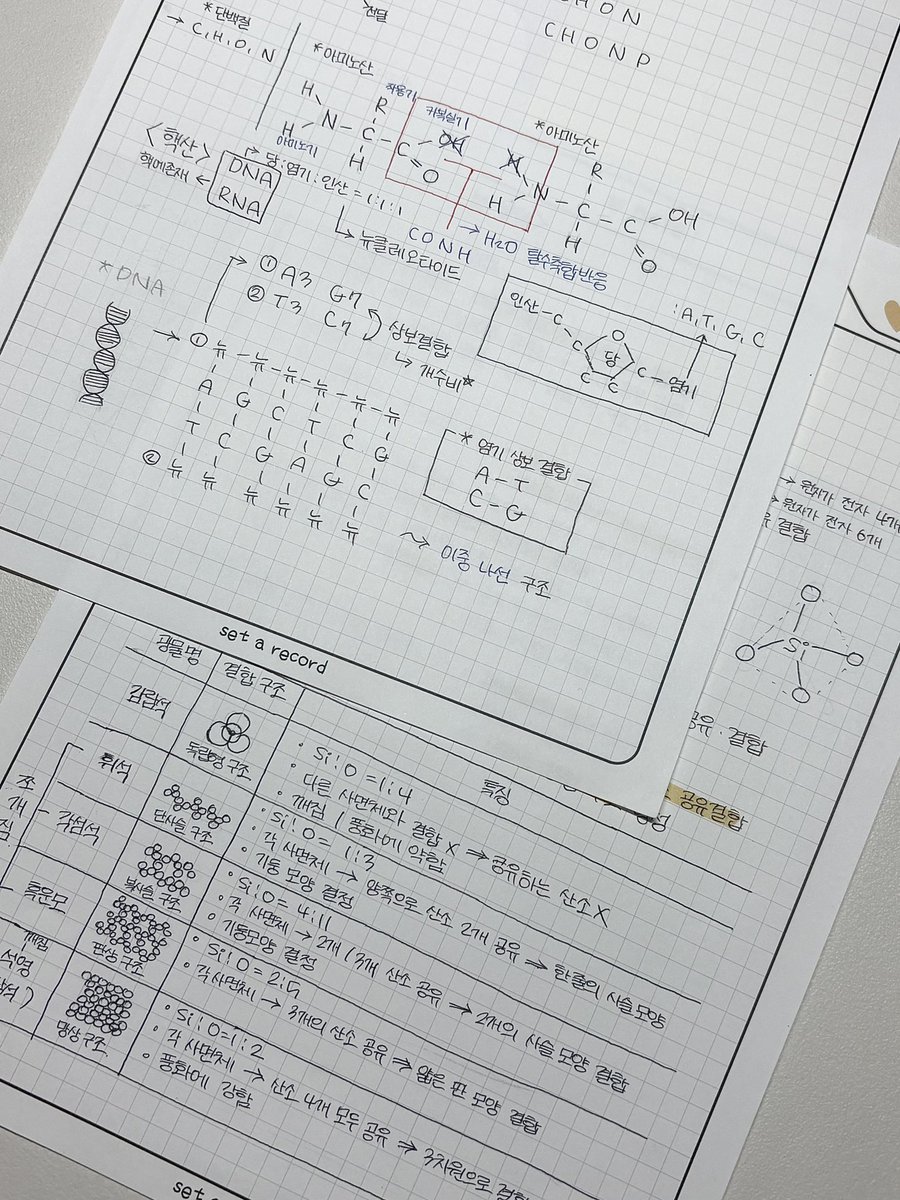 전달
CHON
CHONP
*단백질
→ C, H, O, N
*아미노산
H
R
작용기
카복실기
*아미노산
H - N - C - C OH H N - C - C - OH
아미노기
H
O
H
H
R
O
CONH → H2O 탈수축합반응
<핵산>
핵에존재 ← DNA
RNA
→ 당:염기:인산 = 1:1:1
↳ 뉴클레오타이드
*DNA
① A3 G7
② T3 C7
상보결합
↳ 개수비*
인산 - C
C
O
당
C
C
C - 염기
: A, T, G, C
→ ① 뉴 - 뉴 - 뉴 - 뉴 - 뉴 - 뉴
A G C T C G
T C G A G C
② 뉴 뉴 뉴 뉴 뉴 뉴
* 염기 상보 결합
A - T
C - G
~> 이중 나선 구조
set a record
→ 원자가 전자 4개
→ 원자가 전자 6개
결합
Si
공유 결합
공유결합
광물명
결합 구조
특징
감람석
독립형 구조
• Si:O = 1:4
• 다른 사면체와 결합 X ⇒ 공유하는 산소 X
• 깨짐 / 풍화에 약함
휘석
단사슬 구조
• Si:O = 1:3
• 각 사면체 → 양쪽으로 산소 2개 공유 ⇒ 한줄의 사슬 모양
• 기둥 모양 결정
각섬석
복사슬 구조
• Si:O = 4:11
• 각 사면체 → 2개 / 3개 산소 공유 ⇒ 2개의 사슬 모양 결합
• 기둥모양 결정
흑운모
판상 구조
• Si:O = 2:5
• 각 사면체 → 3개의 산소 공유 ⇒ 얇은 판 모양 결합
쪼
개
짐
깨짐
석영
망상 구조
• Si:O = 1:2
• 각 사면체 → 산소 4개 모두 공유 ⇒ 3차원으로 결합
• 풍화에 강함
set